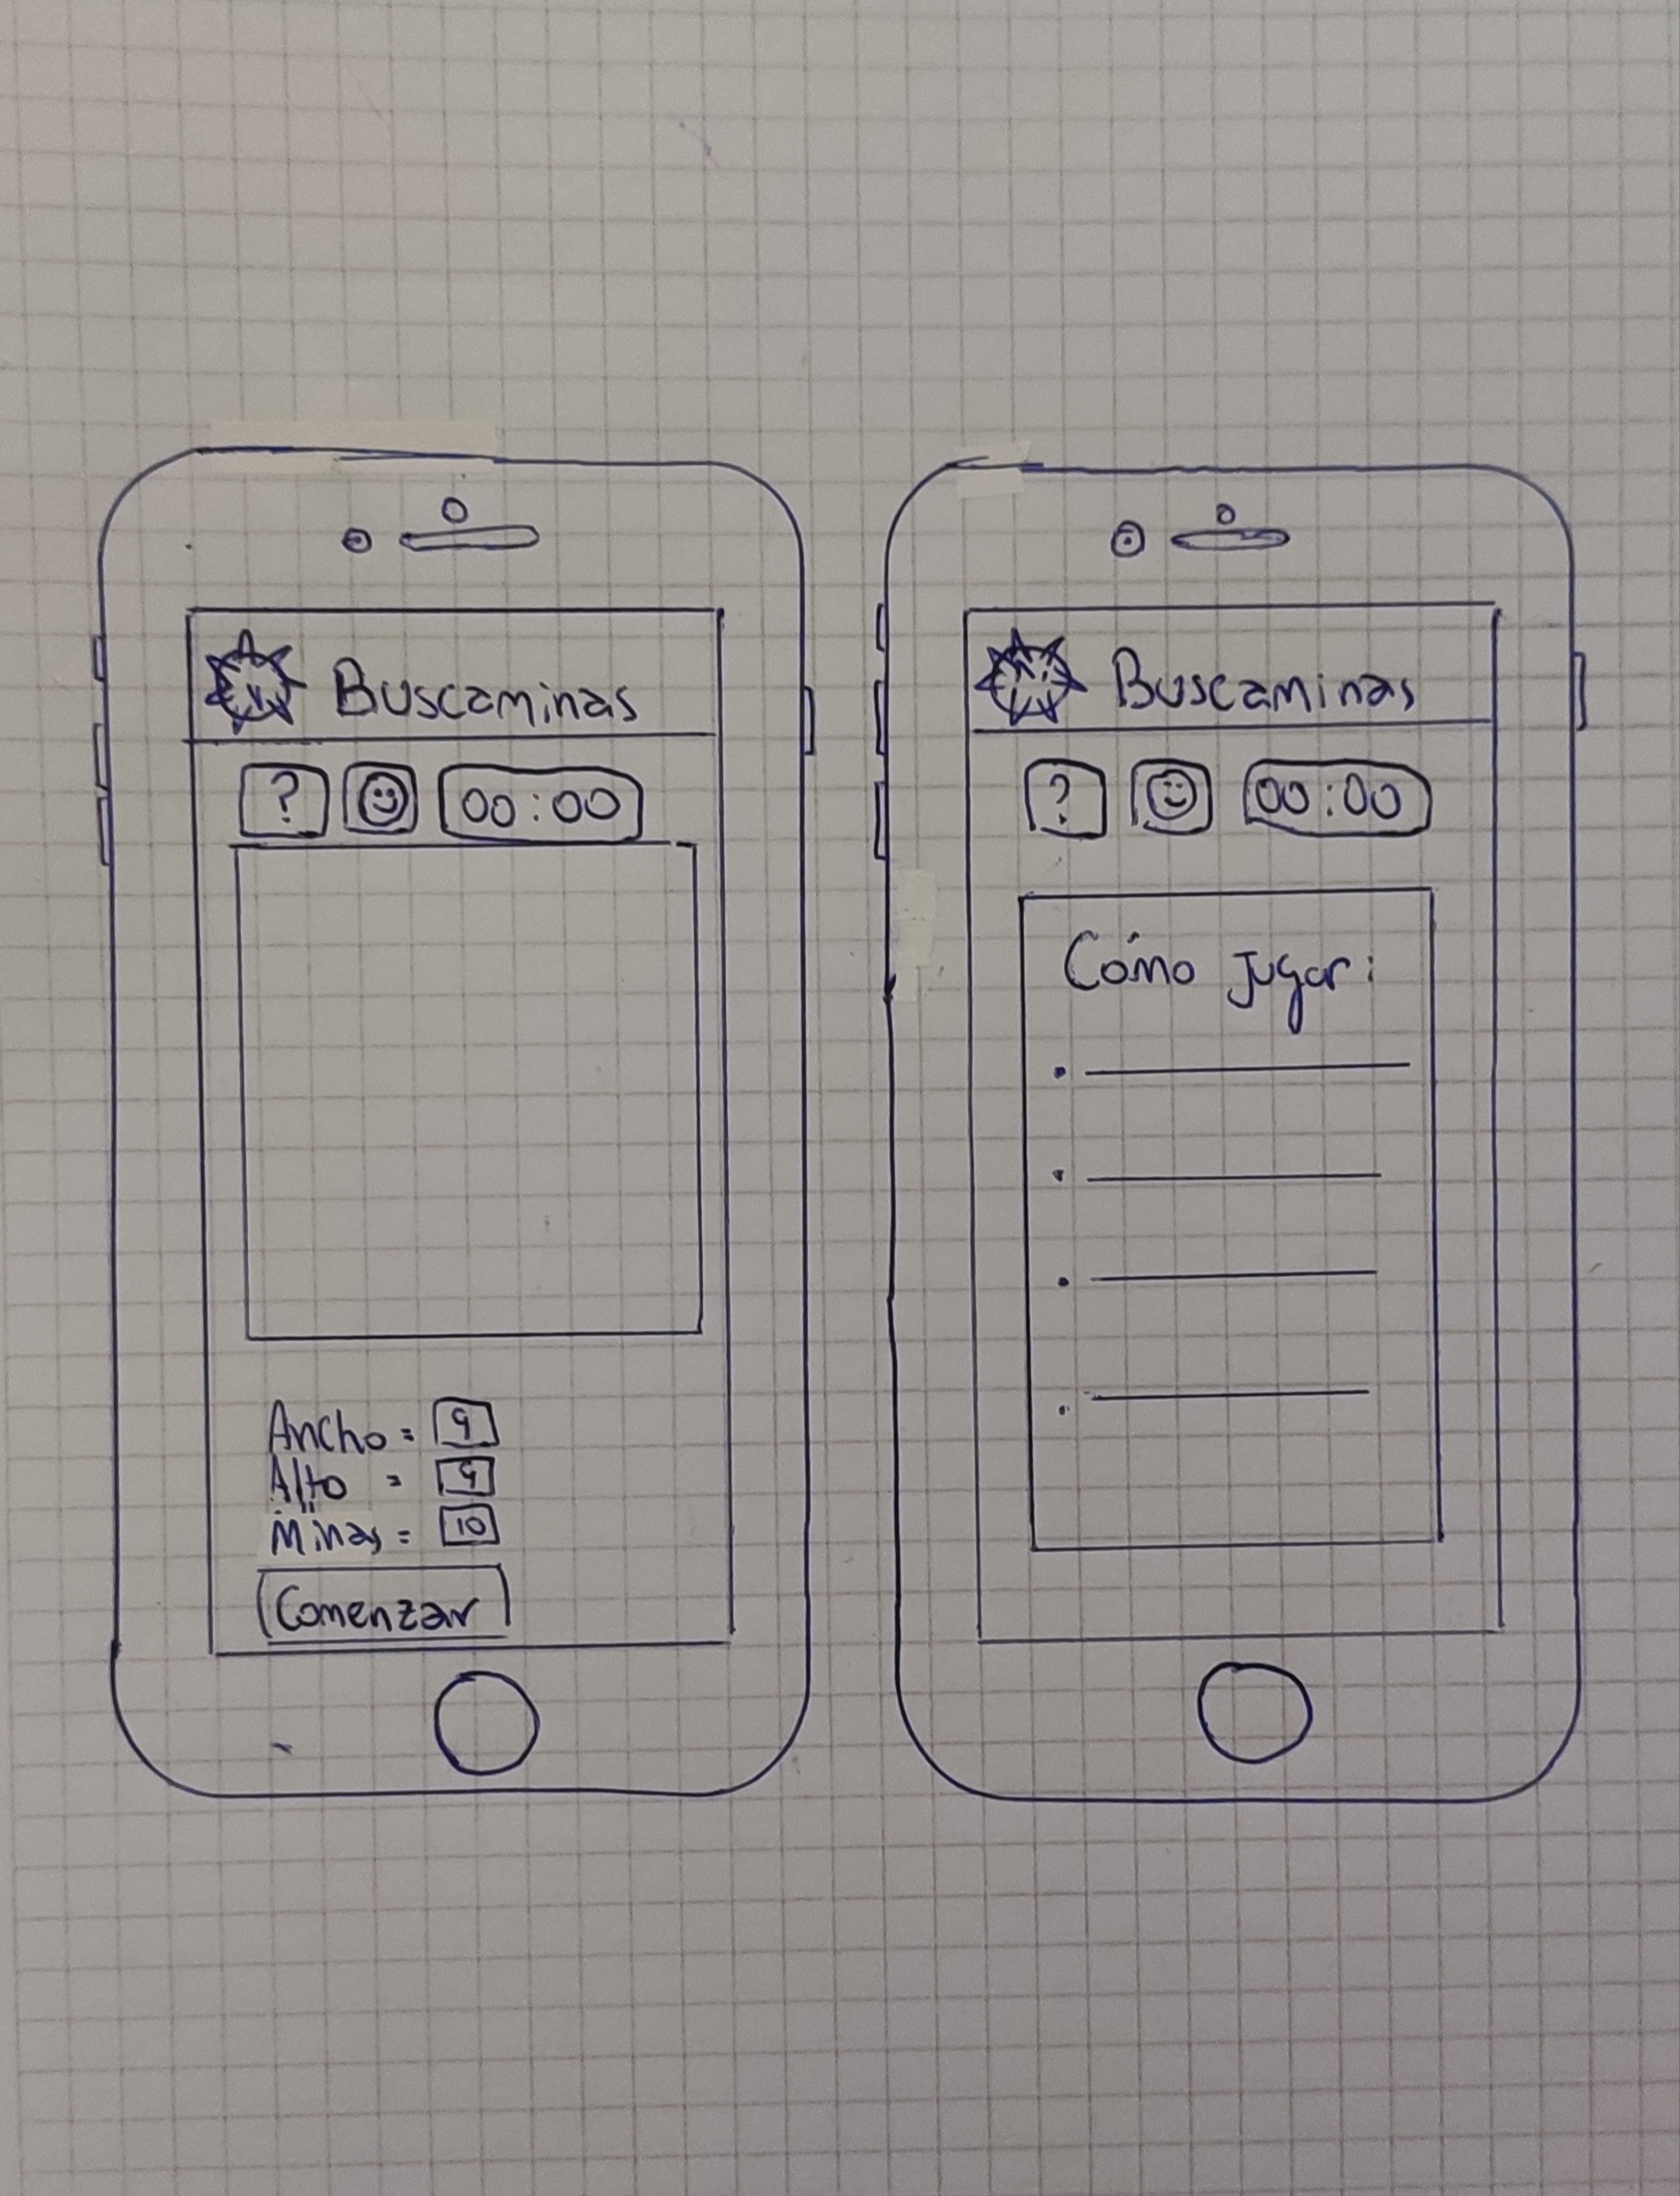 Buscaminas
? 00:00
Ancho = 9
Alto = 9
Minas = 10
Comenzar
Buscaminas
? 00:00
Cómo jugar: